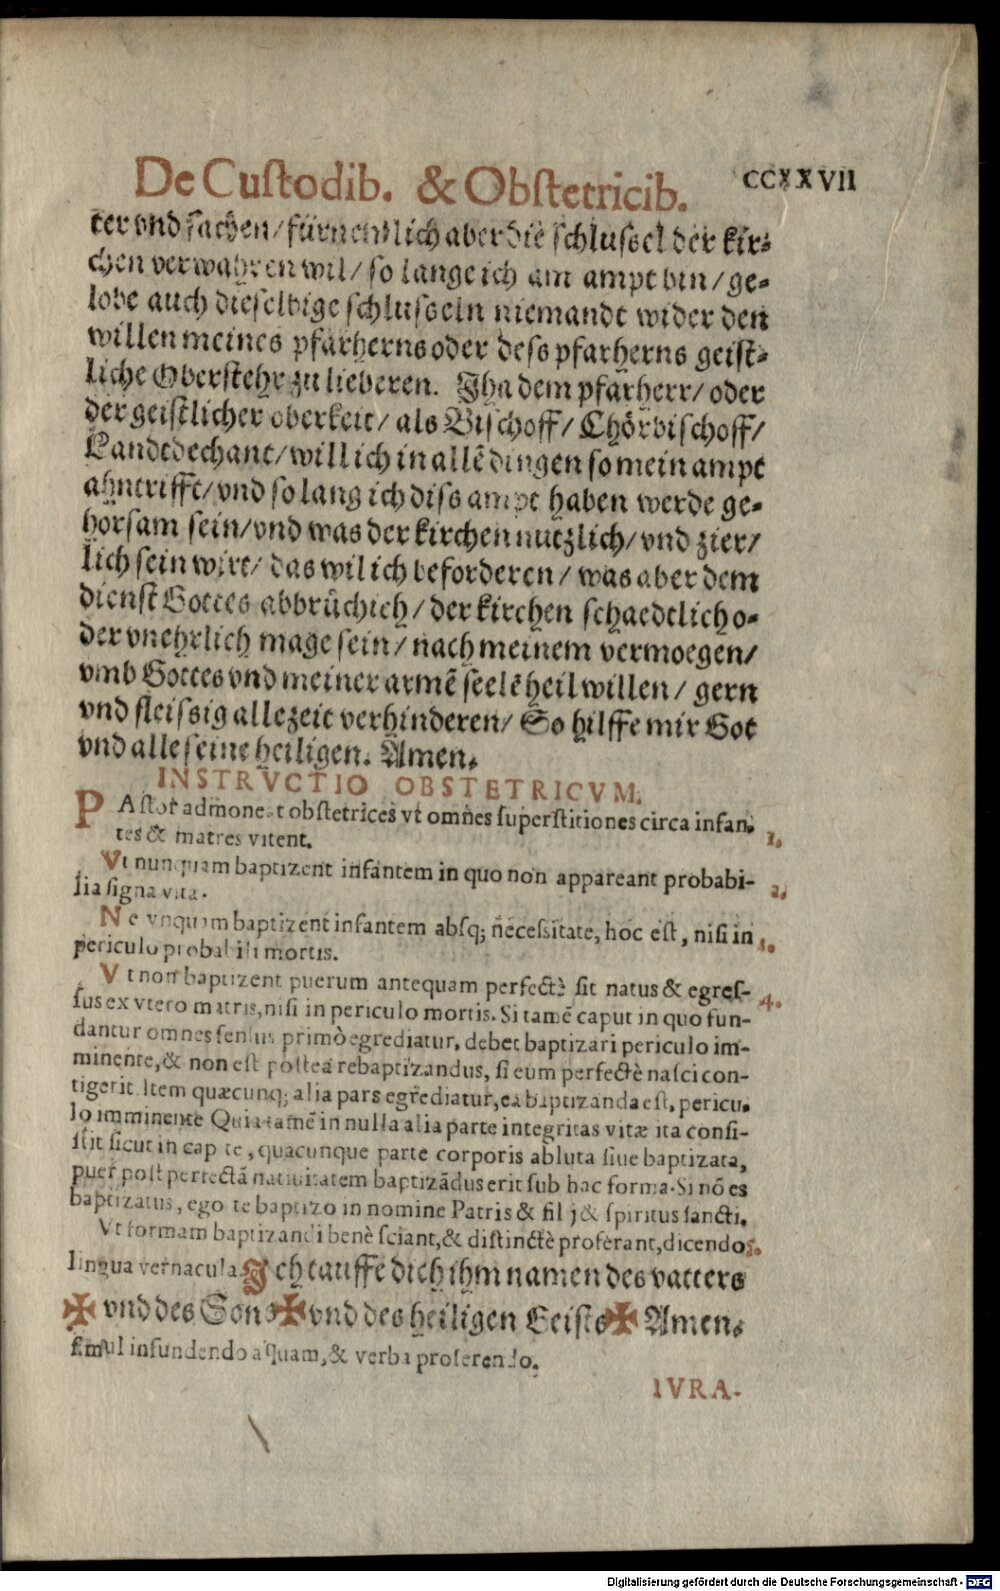 De Custodib. & Obstetricib. CCXXVII
ter vnd sachen/ fürnemlich aber die schlussel der kir-
chen verwahren wil/ so lange ich am ampt bin/ ge-
lobe auch dieselbige schlusseln niemandt wider den
willen meines pfarherns oder dess pfarherns geist-
liche Oberstehr zu lieberen. Jha dem pfarherr/ oder
der geistlicher oberkeit/ als Bischoff/ Chörbischoff/
Landtdechant/ will ich in allē dingen so mein ampt
ahntrifft/ vnd so lang ich diss ampt haben werde ge-
horsam sein/ vnd was der kirchen nutzlich/ vnd zier/
lich sein wirt/ das wil ich beforderen/ was aber dem
dienst Gottes abbrüchich/ der kirchen schaedtlich o-
der vnehrlich mage sein/ nach meinem vermoegen/
vmb Gottes vnd meiner armē seelē heil willen/ gern
vnd fleissig allezeit verhinderen/ So hilffe mir Got
vnd alle seine heiligen. Amen.
INSTRVCTIO OBSTETRICVM.
PAstor admoneat obstetrices vt omnes superstitiones circa infan-
tes & matres vitent. 1.
Vt nunquam baptizent infantem in quo non appareant probabi-
lia signa vitæ. 2.
Ne vnquam baptizent infantem absq; necessitate, hoc est, nisi in 3.
periculo probabili mortis.
Vt non baptizent puerum antequam perfectè sit natus & egres- 4.
sus ex vtero matris, nisi in periculo mortis. Si tamē caput in quo fun-
dantur omnes sensus primò egrediatur, debet baptizari periculo im-
minente, & non est postea rebaptizandus, si eum perfectè nasci con-
tigerit. Item quæcunq; alia pars egrediatur, ea baptizanda est, pericu-
lo imminente Quia tamē in nulla alia parte integritas vitæ ita consi-
stit sicut in capite, quacunque parte corporis abluta siue baptizata,
puer post perfectā natiuitatem baptizādus erit sub hac forma. Si nō es
baptizatus, ego te baptizo in nomine Patris & filij & spiritus sancti.
Vt formam baptizandi benè sciant, & distinctè proferant, dicendo 5.
lingua vernacula. Jch tauffe dich ihm namen des vatters
✠ vnd des Sons ✠ vnd des heiligen Geists ✠ Amen.
simul infundendo aquam, & verba proferendo.
IVRA-
Digitalisierung gefördert durch die Deutsche Forschungsgemeinschaft - DFG